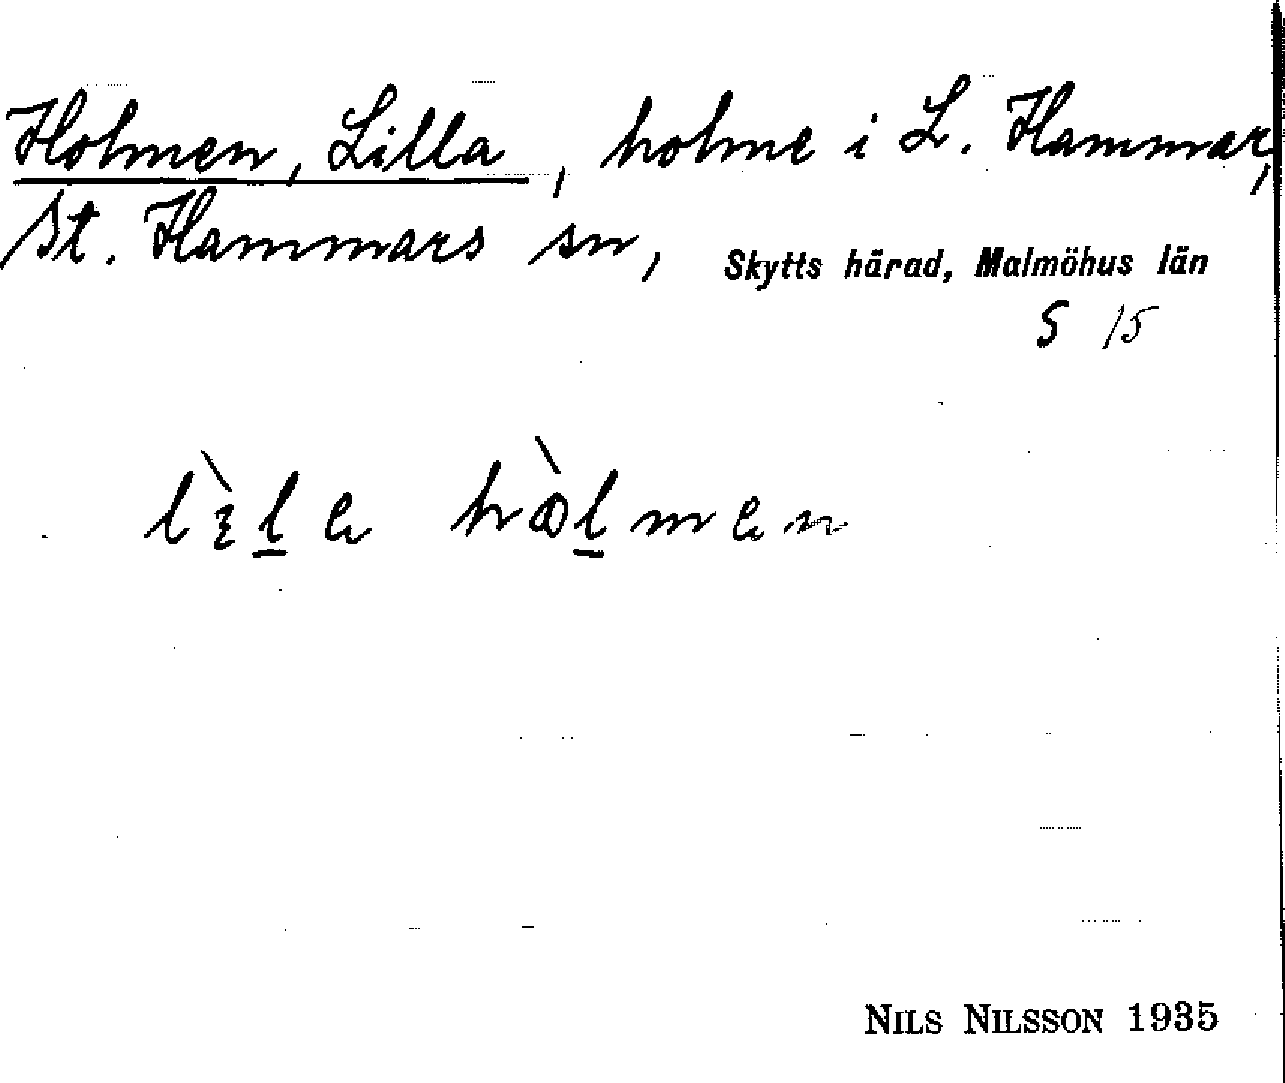 Holmen, Lilla, holme i L. Hammar,
St. Hammars sn, Skytts härad, Malmöhus län
S 15
NILS NILSSON 1935